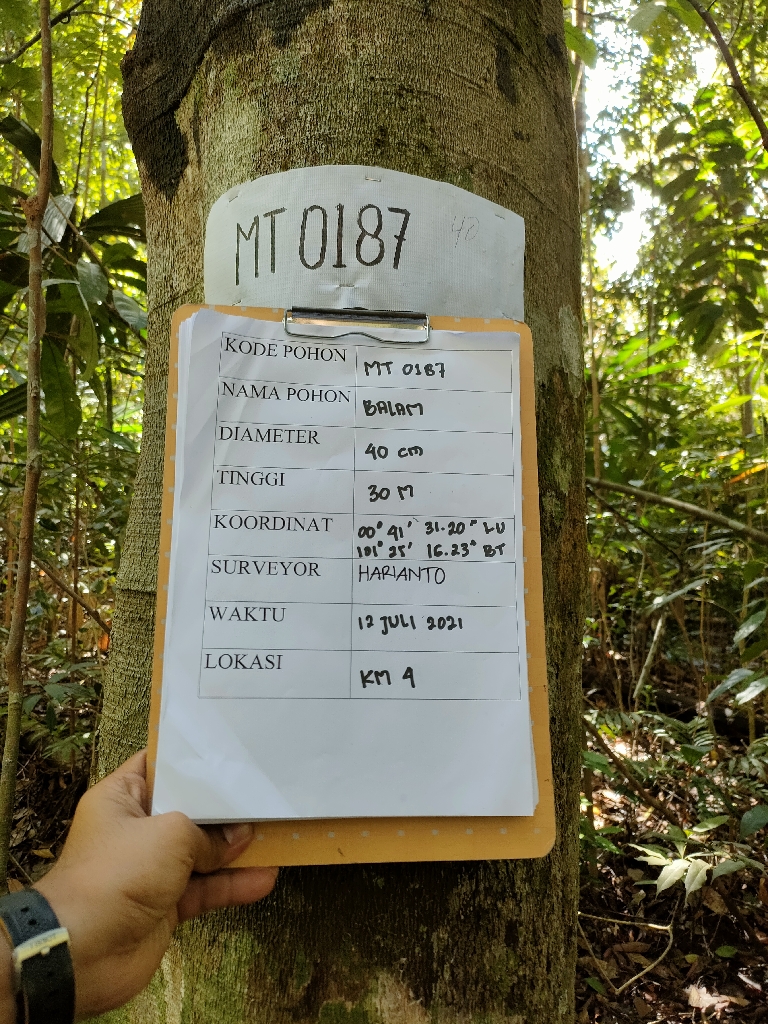 MT 0187 40
KODE POHON MT 0187
NAMA POHON BALAM
DIAMETER 40 cm
TINGGI 30 M
KOORDINAT 00° 41' 31.20" LU
101° 25' 16.23" BT
SURVEYOR HARIANTO
WAKTU 12 JULI 2021
LOKASI KM 4